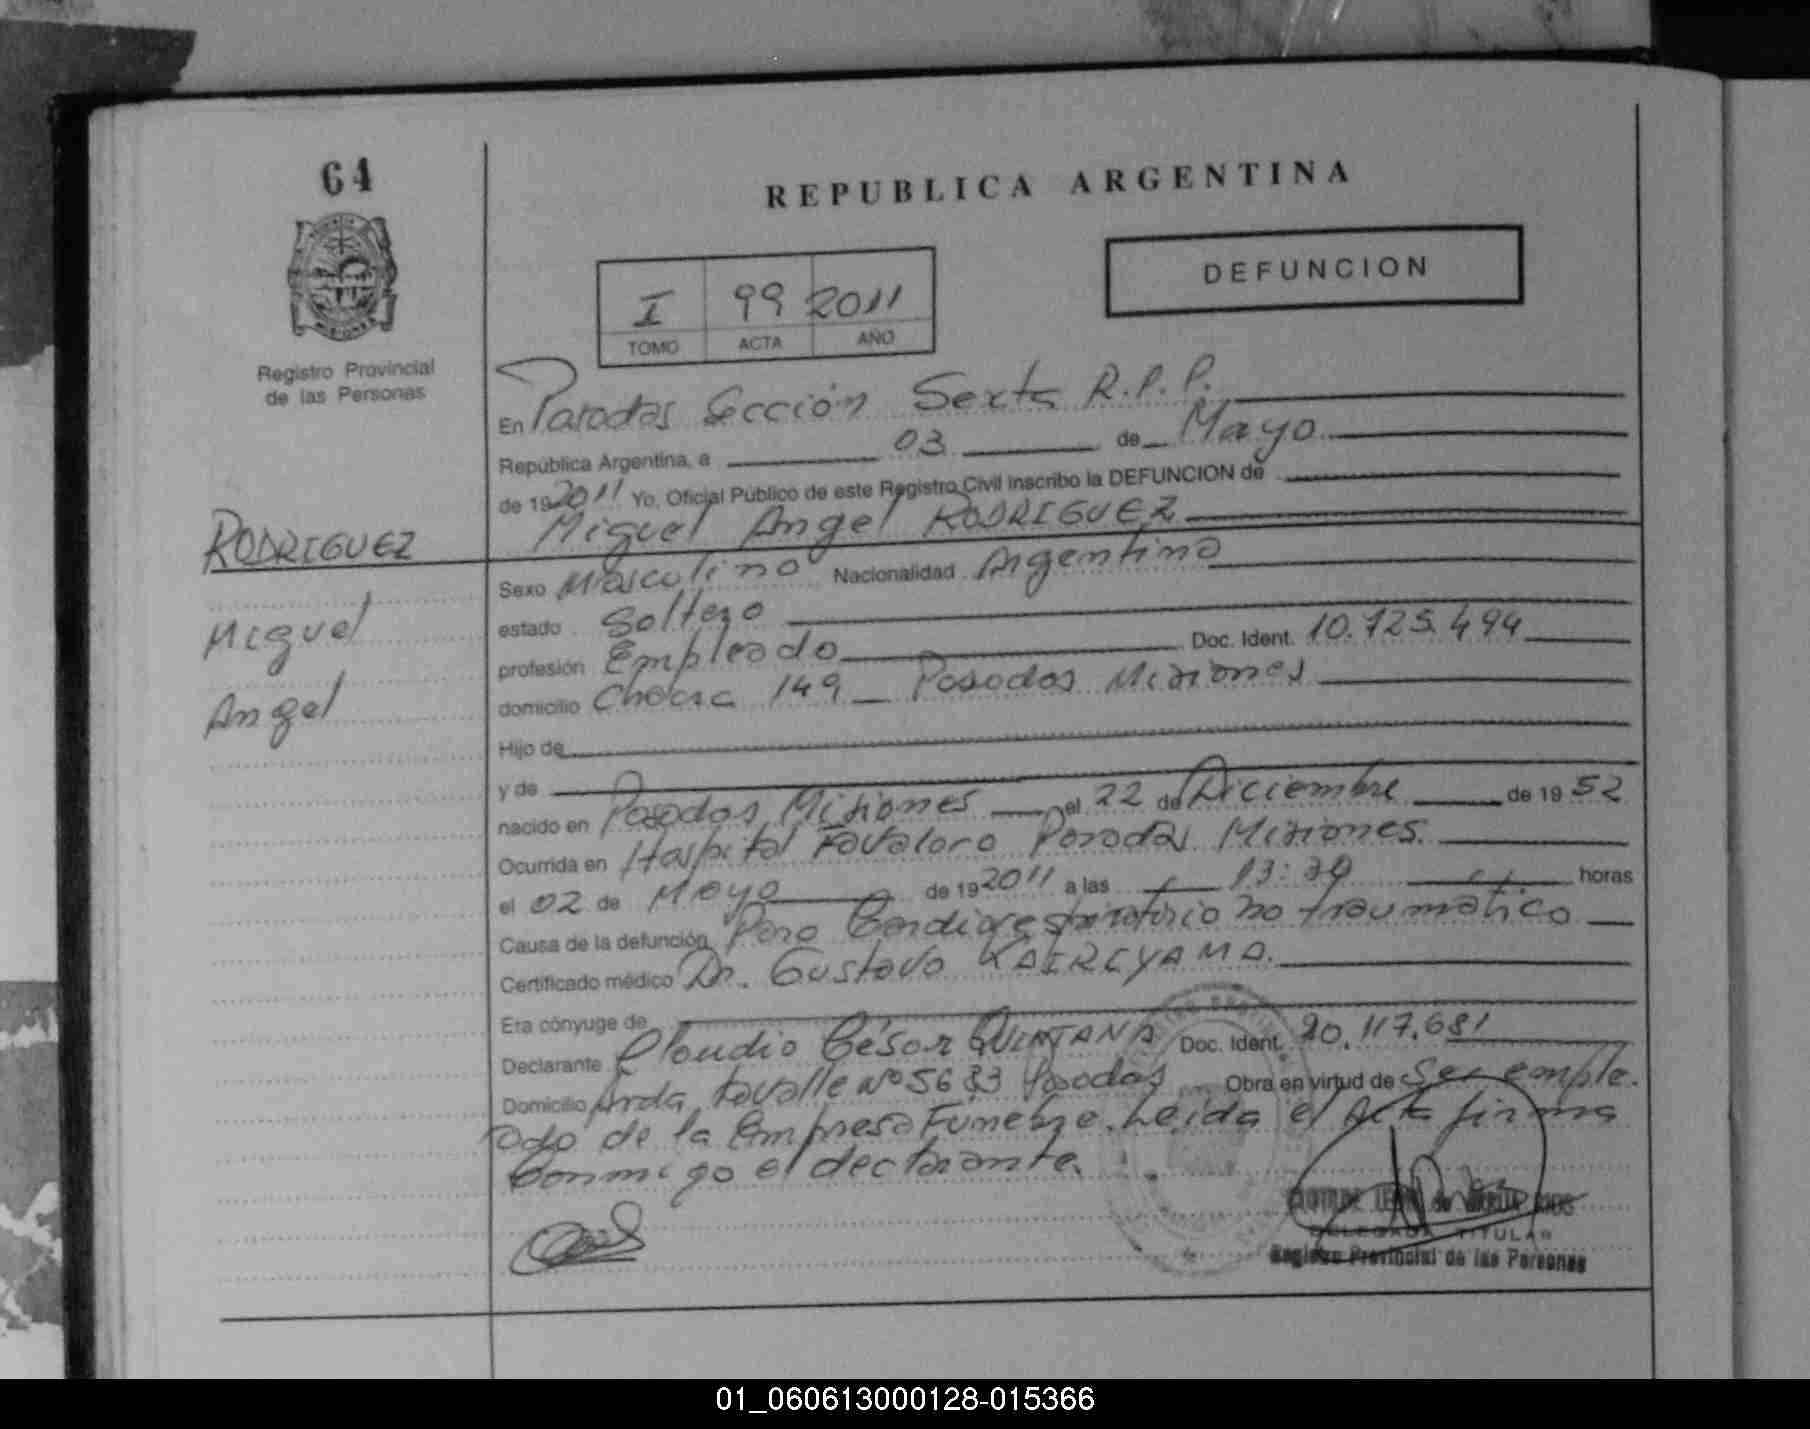 64
REPUBLICA ARGENTINA
DEFUNCION
I 99 2011
TOMO ACTA AÑO
Registro Provincial
de las Personas
En Posadas Sección Sexta R.P.P.
República Argentina, a 03 de Mayo
de 19 2011 Yo, Oficial Público de este Registro Civil inscribo la DEFUNCION de
Miguel Angel RODRIGUEZ
RODRIGUEZ
Miguel
Angel
Sexo Masculino Nacionalidad Argentina
estado Soltero
profesión Empleado Doc. Ident. 10.725.494
domicilio Chacra 149 Posadas Misiones
Hijo de
y de
nacido en Posadas Misiones el 22 de Diciembre de 19 52
Ocurrida en Hospital Favaloro Posadas Misiones.
el 02 de Mayo de 19 2011 a las 13:30 horas
Causa de la defunción Paro Cardiorespiratorio no traumático
Certificado médico Dr. Gustavo
Era cónyuge de
Declarante Claudio César QUINTANA Doc. Ident. 20.117.681
Domicilio Avda. Lavalle Nº 5633 Posadas Obra en virtud de Ser emple.
ado de la Empresa Funebre. Leida el Acta firma
Conmigo el declarante.
DELEGADA TITULAR
Registro Provincial de las Personas
01_060613000128-015366